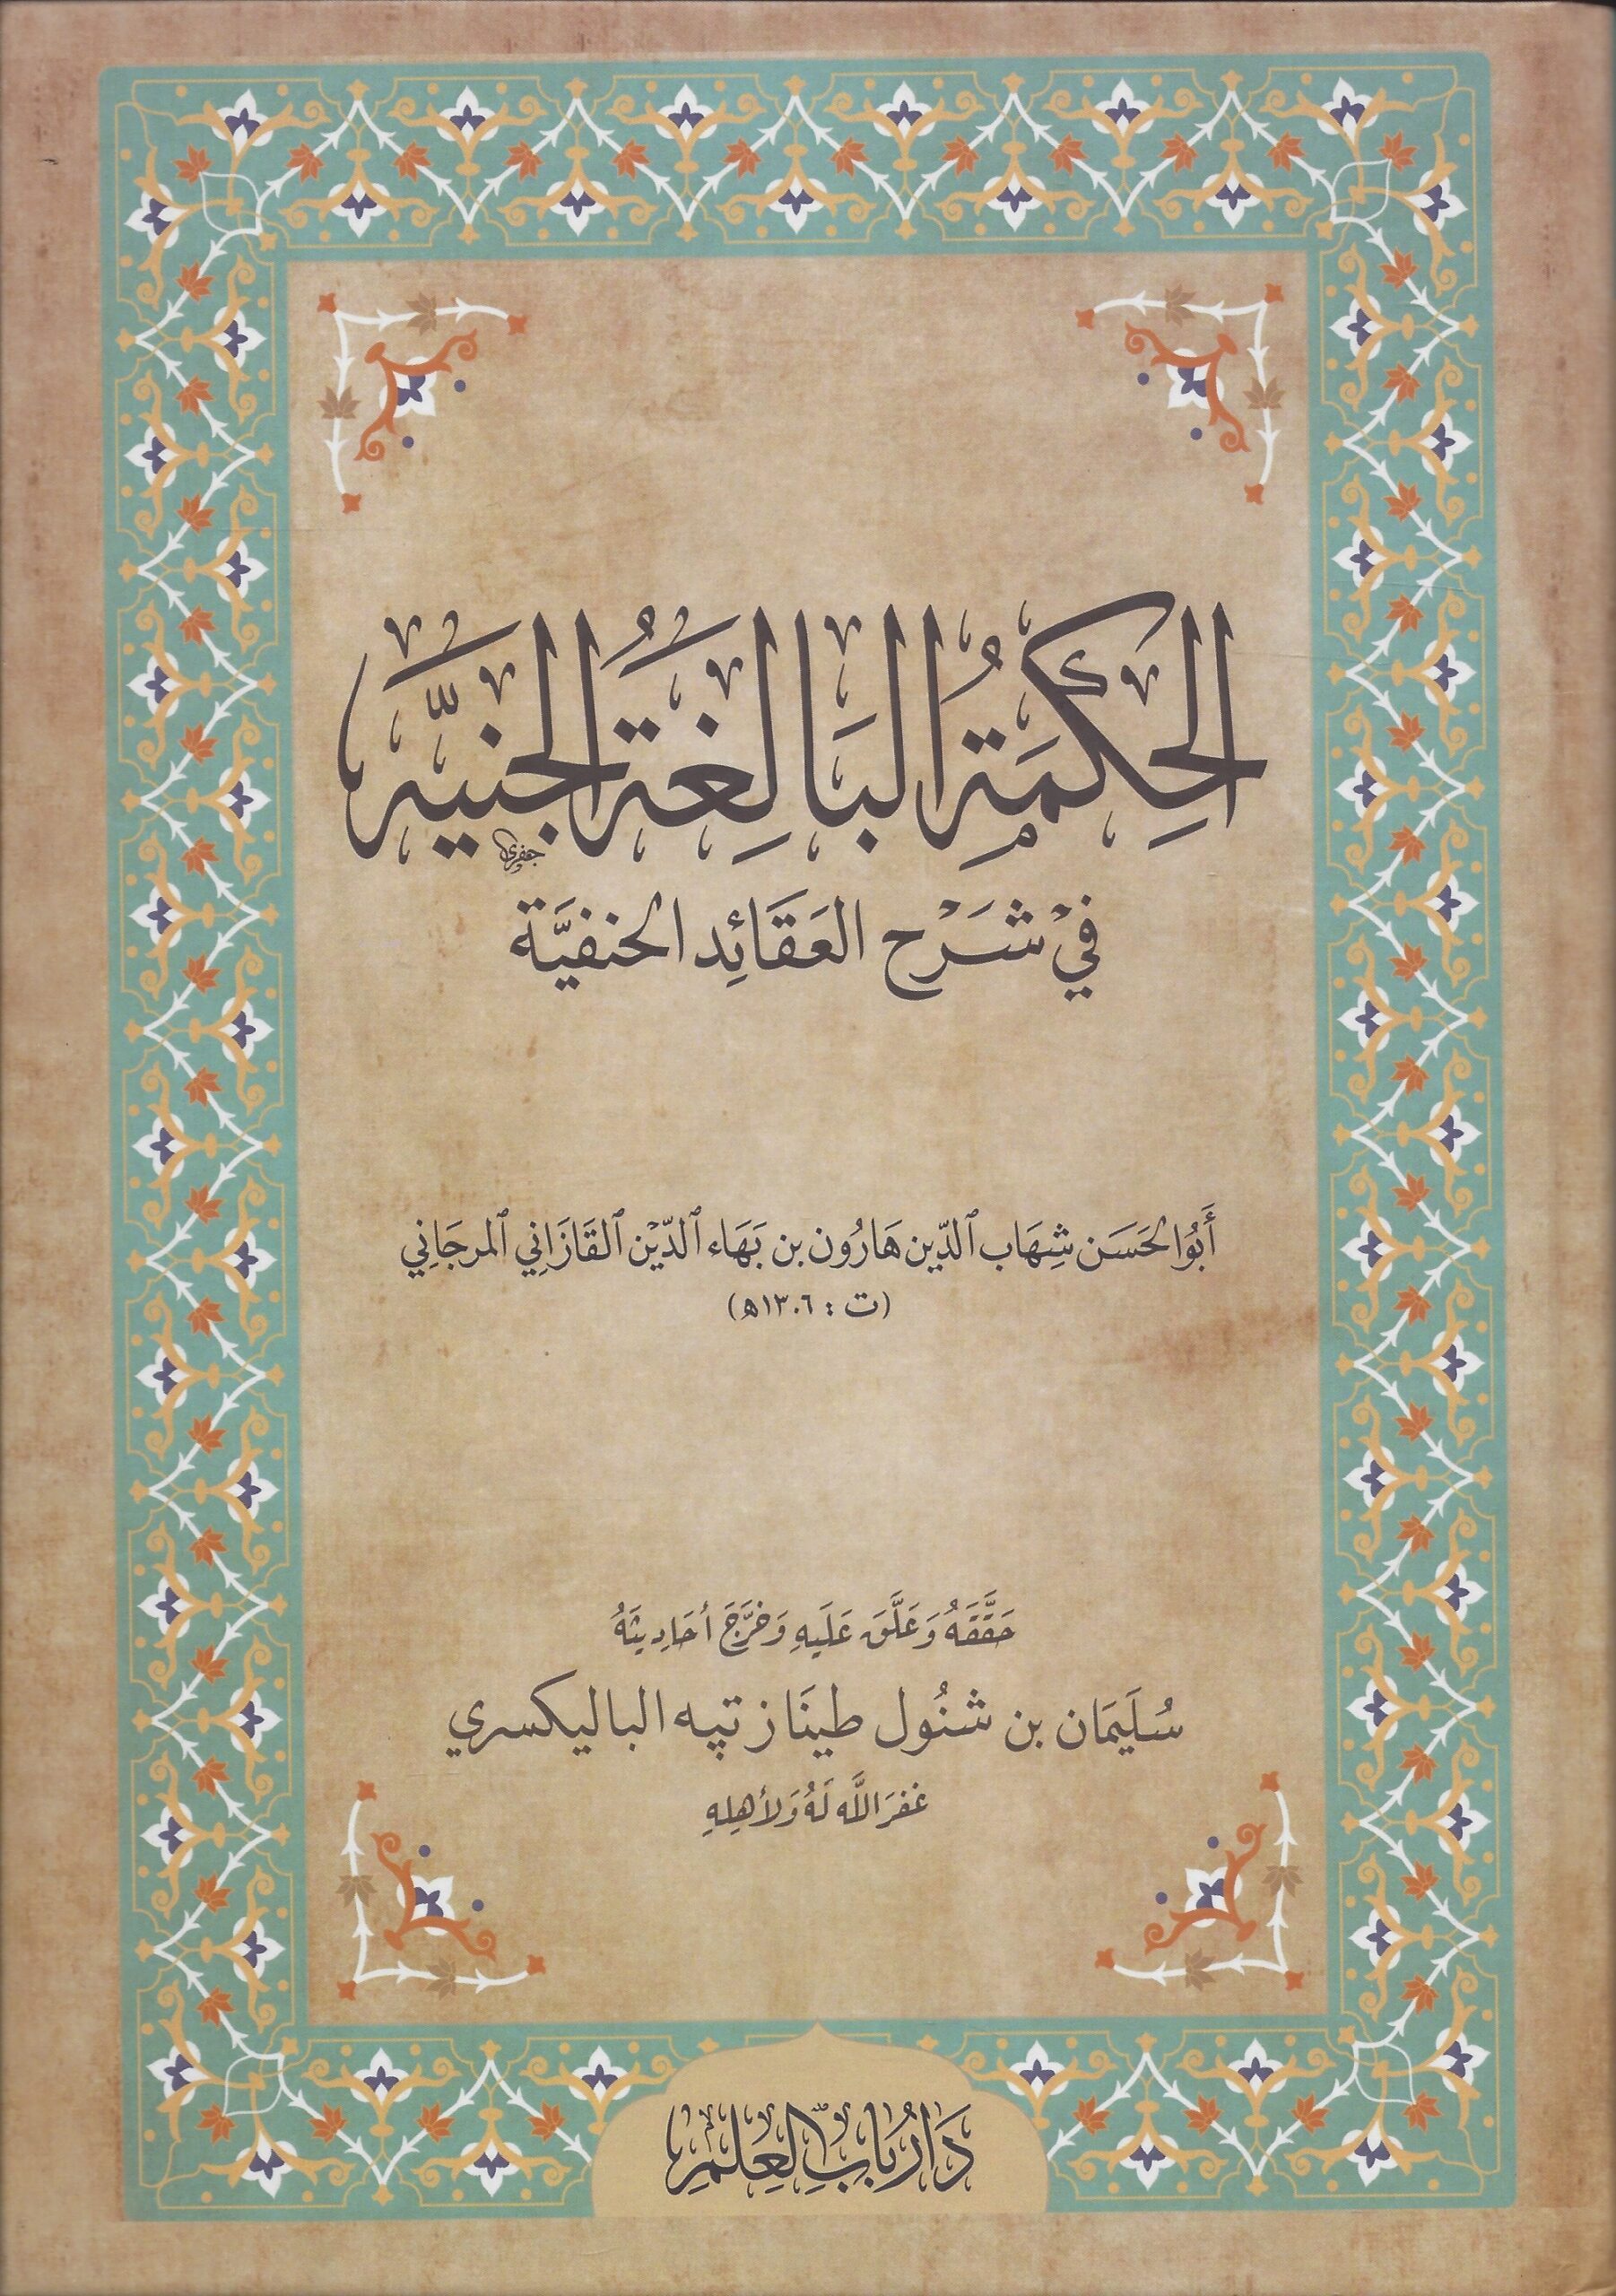 الحِكْمَةُ البَالِغَةُ الجَنِيَّة
جفري
فِيْ شَرْحِ العَقَائِدِ الحنفيَّة
أَبُو الحَسَن شِهَاب ٱلدّين هَارُون بن بَهَاء ٱلدّيْن ٱلقَازَانِي ٱلمرجَانِي
(ت : ١٣٠٦ه)
حَقَّقَهُ وَعَلَّقَ عَلَيهِ وَخَرَّجَ أحَادِيثَهُ
سُلَيمَان بن شنُول طينَاز تپه الباليكسري
غفرَ اللَّه لَهُ وَلأهِلهِ
دَارُ بَابِ العِلمِ